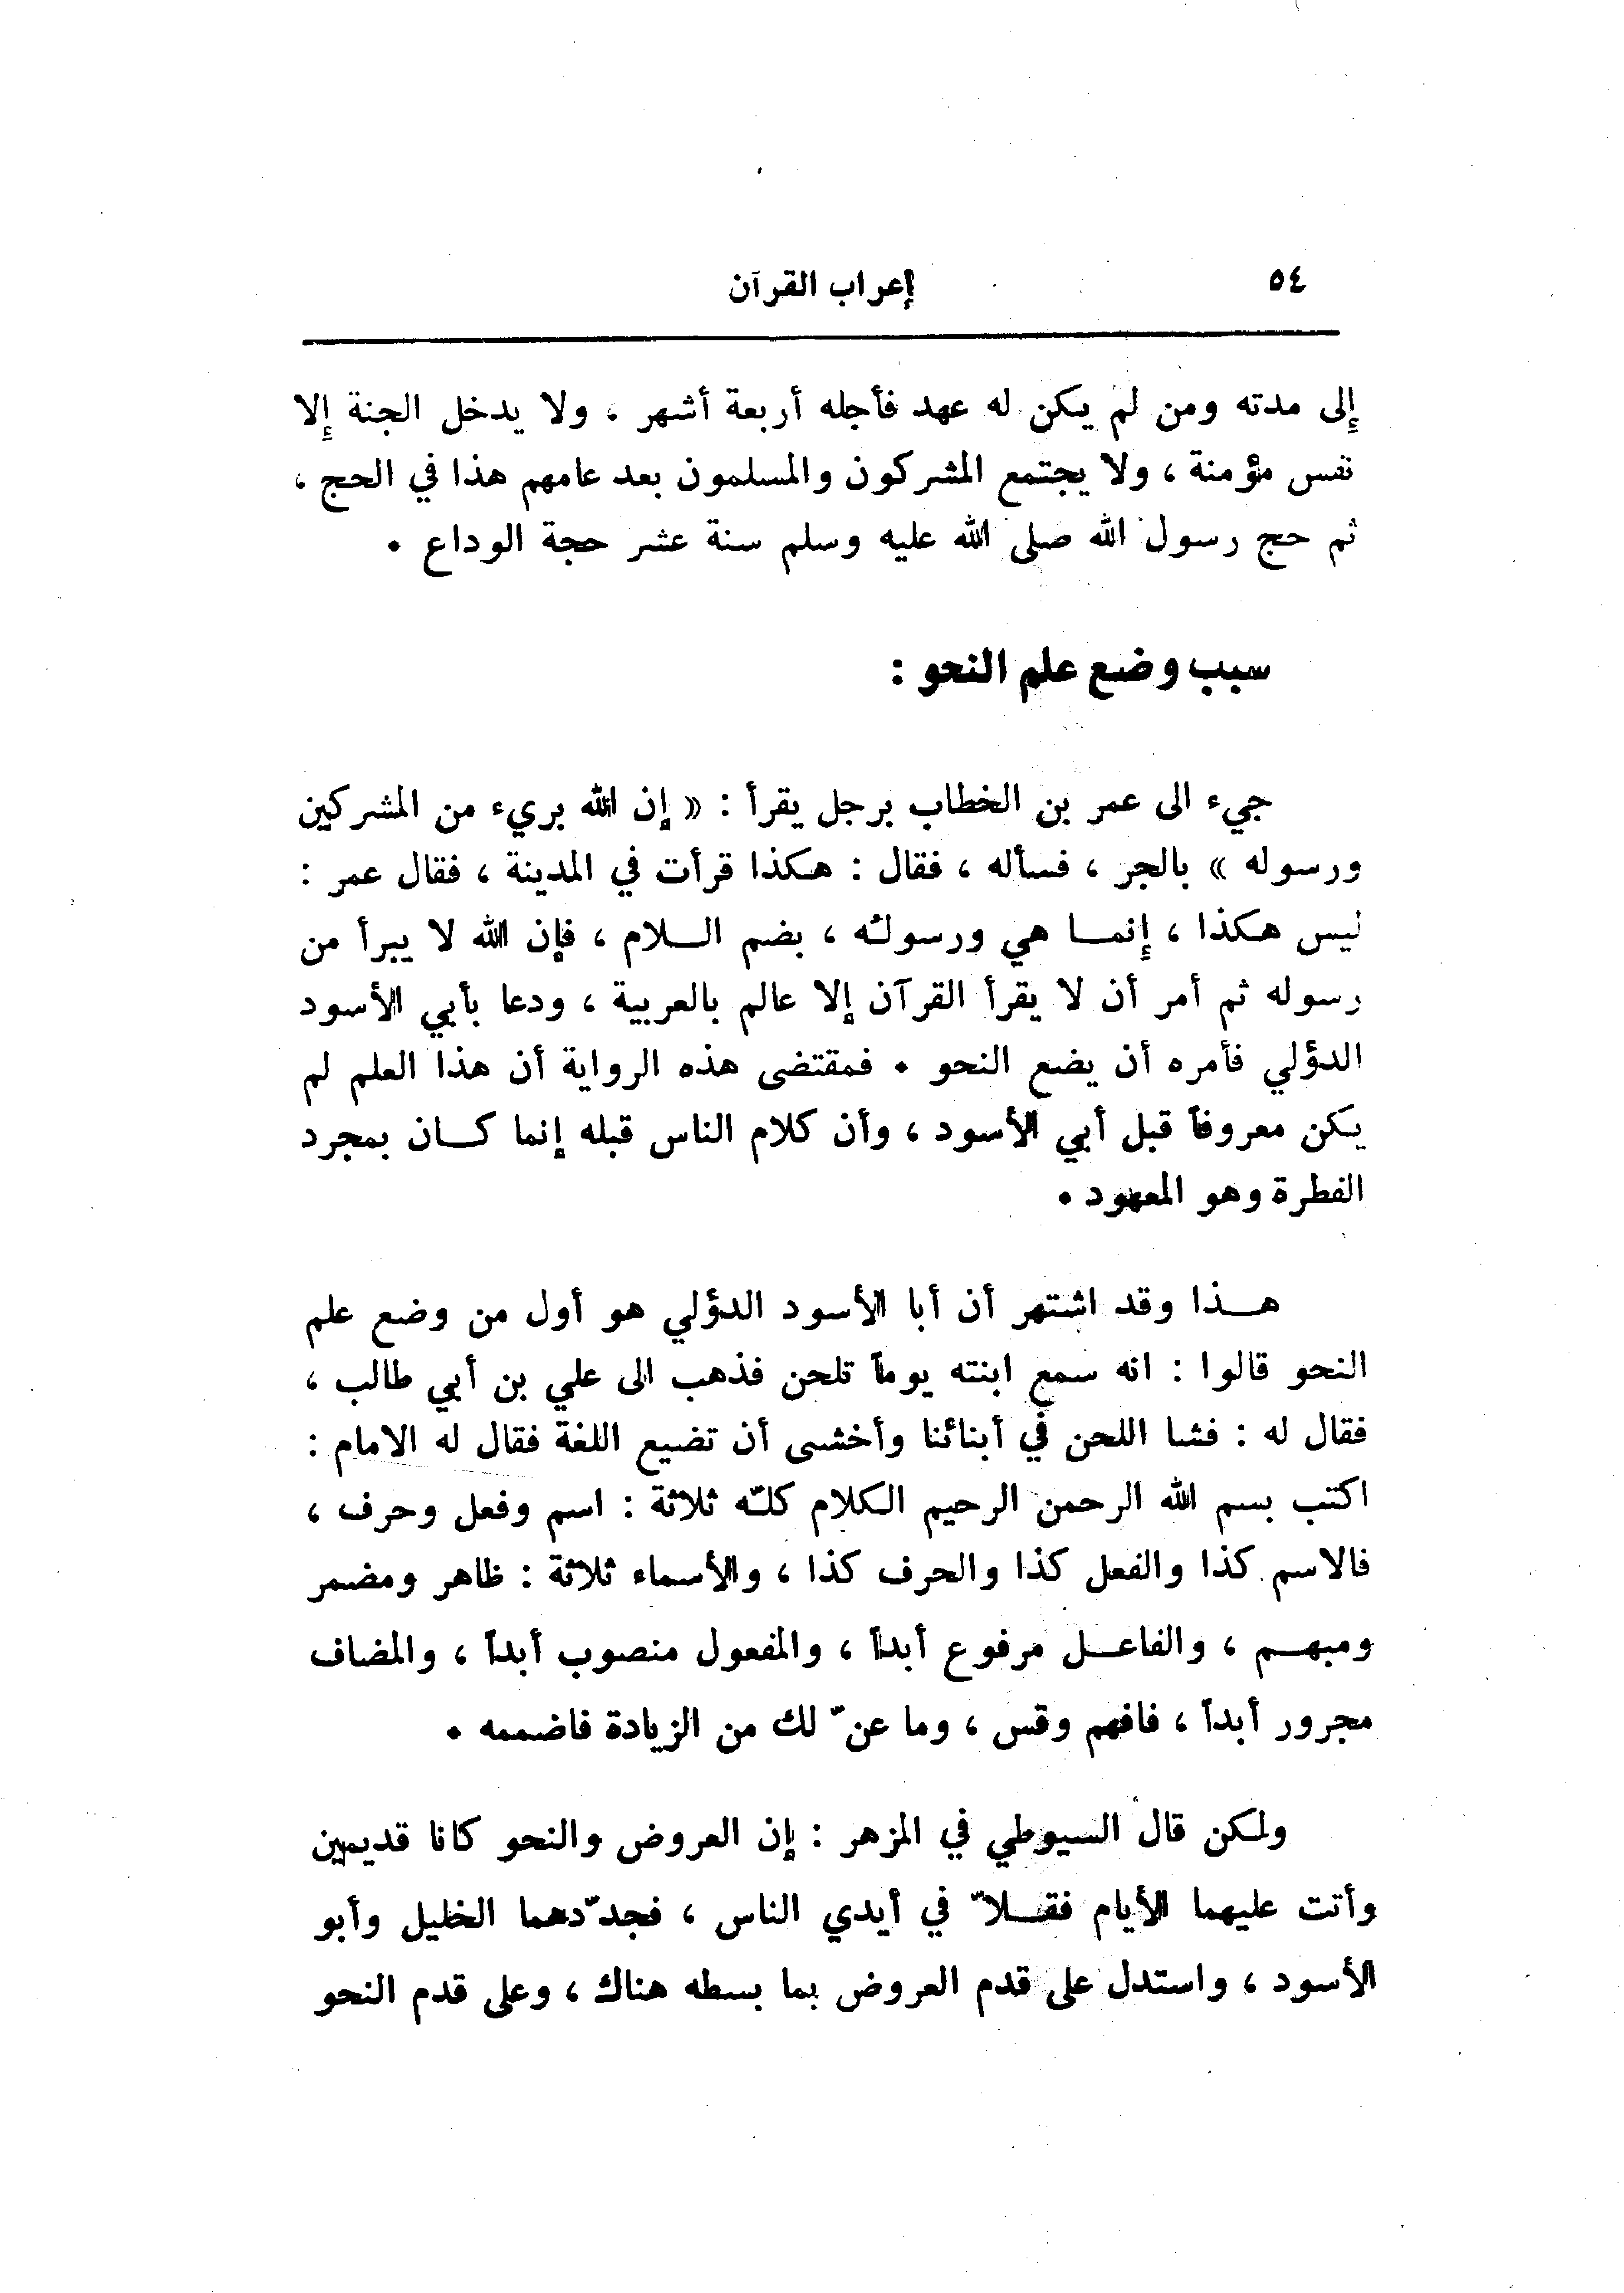 ٥٤ إعراب القرآن
إلى مدته ومن لم يكن له عهد فأجله أربعة أشهر ، ولا يدخل الجنة إلا
نفس مؤمنة ، ولا يجتمع المشركون والمسلمون بعد عامهم هذا في الحج ،
ثم حج رسول الله صلى الله عليه وسلم سنة عشر حجة الوداع •
سبب وضع علم النحو :
جيء الى عمر بن الخطاب برجل يقرأ : « إن الله بريء من المشركين
ورسوله » بالجر ، فسأله ، فقال : هكذا قرأت في المدينة ، فقال عمر :
ليس هكذا ، إنمـا هي ورسولُه ، بضم الـلام ، فإن الله لا يبرأ من
رسوله ثم أمر أن لا يقرأ القرآن إلا عالم بالعربية ، ودعا بأبي الأسود
الدؤلي فأمره أن يضع النحو • فمقتضى هذه الرواية أن هذا العلم لم
يكن معروفاً قبل أبي الأسود ، وأن كلام الناس قبله إنما كـان بمجرد
الفطرة وهو المعهود •
هـذا وقد اشتهر أن أبا الأسود الدؤلي هو أول من وضع علم
النحو قالوا : انه سمع ابنته يوماً تلحن فذهب الى علي بن أبي طالب ،
فقال له : فشا اللحن في أبنائنا وأخشى أن تضيع اللغة فقال له الامام :
اكتب بسم الله الرحمن الرحيم الكلام كلّه ثلاثة : اسم وفعل وحرف ،
فالاسم كذا والفعل كذا والحرف كذا ، والأسماء ثلاثة : ظاهر ومضمر
ومبهـم ، والفاعـل مرفوع أبداً ، والمفعول منصوب أبداً ، والمضاف
مجرور أبداً ، فافهم وقس ، وما عنّ لك من الزيادة فاضممه •
ولكن قال السيوطي في المزهر : إن العروض والنحو كانا قديمين
وأتت عليهما الأيام فقـلاّ في أيدي الناس ، فجدّدهما الخليل وأبو
الأسود ، واستدل على قدم العروض بما بسطه هناك ، وعلى قدم النحو